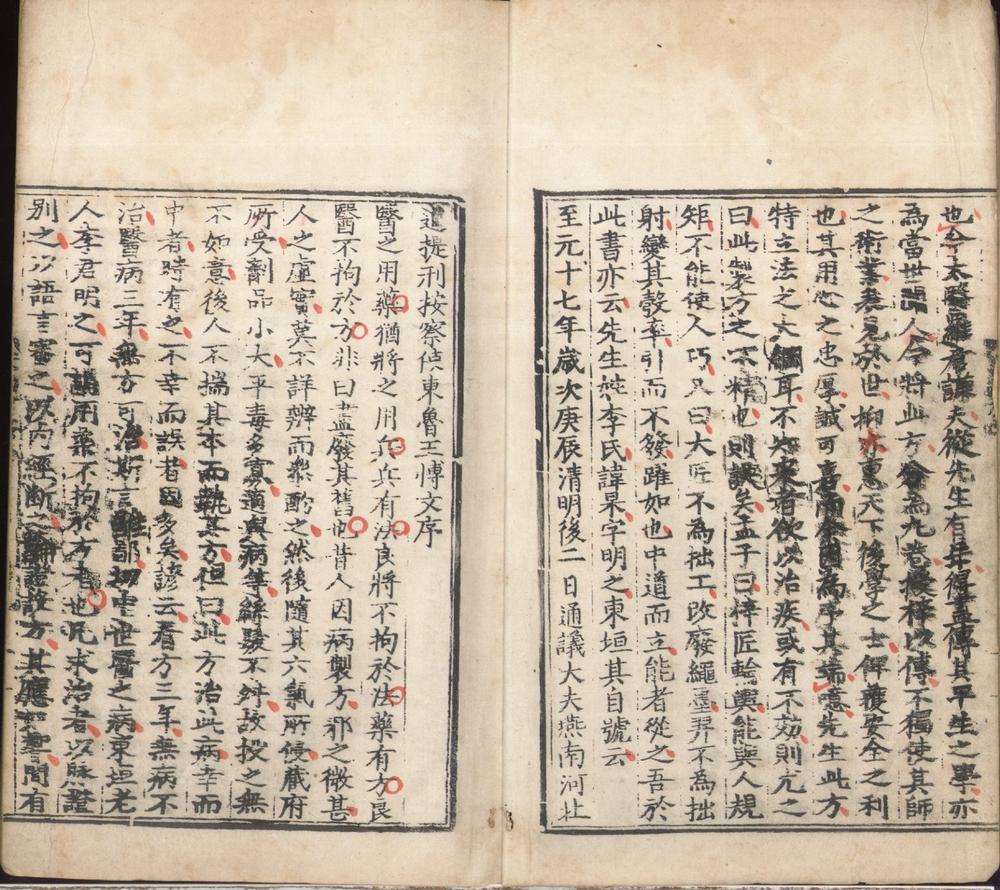 也今太醫羅謙夫從先生有年得盡傳其平生之學亦
為當世聞人今將此方分為九卷授梓以傳不獨使其師
之術業表見於世抑亦惠天下後學之士俾獲安全之利
也其用心之忠厚誠可意先生此方
特立法之大綱耳不知來者欲以治疾或有不効則尤之
曰此製方之不精也則誤矣孟子曰梓匠輪輿能與人規
矩不能使人巧又曰大匠不為拙工改廢繩墨羿不為拙
射變其彀率引而不發躍如也中道而立能者從之吾於
此書亦云先生姓李氏諱杲字明之東垣其自號云
至元十七年歲次庚辰清明後二日通議大夫燕南河北
道提刑按察使東魯王博文序
醫之用藥猶將之用兵兵有法良將不拘於法藥有方良
醫不拘於方非曰盡廢其舊也昔人因病製方邪之微甚
人之虛實莫不詳辨而參酌之然後隨其六氣所侵藏府
所受劑品小大平毒多寡適與病等絲髮不舛故投之無
不如意後人不揣其本而執其方但曰此方治此病幸而
中者時有之不幸而誤者固多矣諺云看方三年無病不
治醫病三年無方可治斯言雖鄙切中世醫之病東垣老
人李君明之可謂用藥不拘於方者也凡求治者以脉證
別之以語言審之以內經斷之論證設方其應如響間有